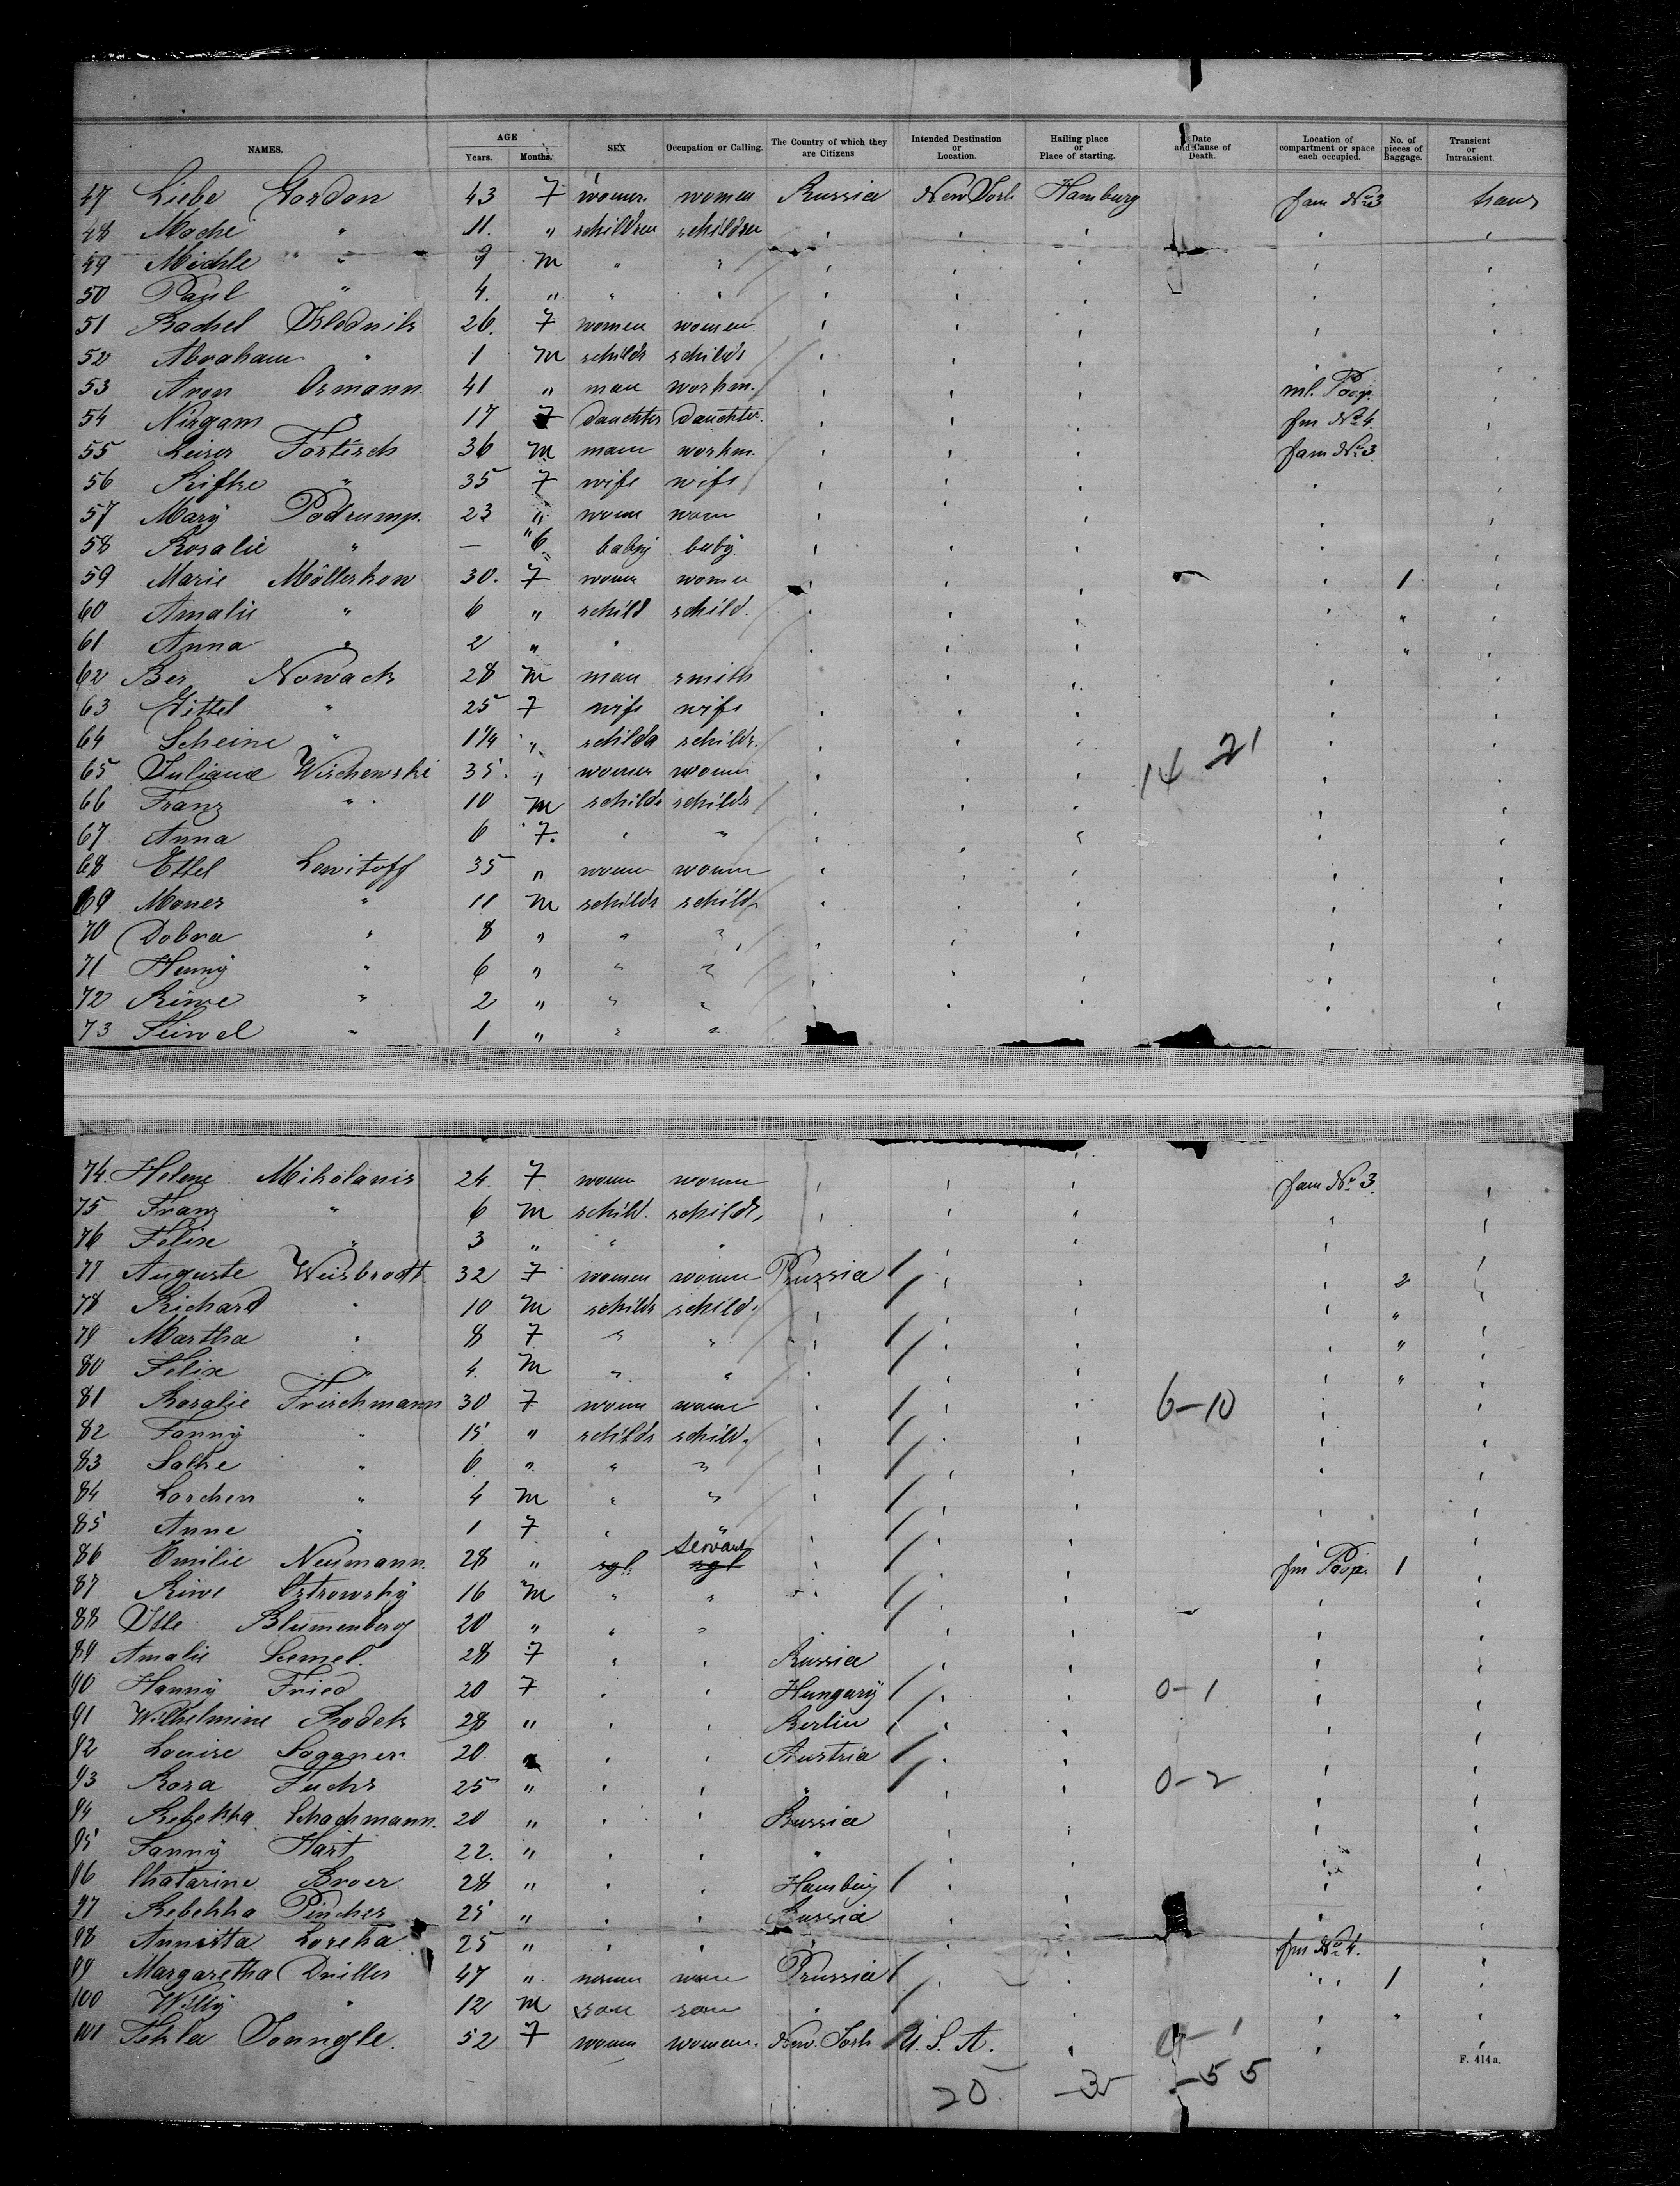 NAMES. AGE Years. Months. SEX Occupation or Calling. The Country of which they are Citizens Intended Destination or Location. Hailing place or Place of starting. Date and Cause of Death. Location of compartment or space each occupied. No. of pieces of Baggage. Transient or Intransient.
47 Liebe Gordon 43 F women women Russia New York Hamburg fam No. 3 trans
48 Moche " 11. " schildren schildren
49 Michle " 9 m " "
50 Paul " 4. " " "
51 Rachel Klodnik 26. F women women
52 Abraham " 1 m schilds schilds
53 Aron Osmann. 41 " man workm. ml. Poop.
54 Nirgam " 17 F Dauchter Dauchter. fm No. 4.
55 Leiser Fortisch 36 m man workm. fam No. 3.
56 Rifke " 35 F wife wife
57 Mary Podrump. 23 "
58 Rosalie " — 6 baby baby
59 Marie Möllerkow 30. F women women 1
60 Amalie " 6 " schild schild. "
61 Anna " 2 " "
62 Ber Nowack 28 m man smith
63 Gittel " 25 F wife wife
64 Scheine " 1 1/4 " schilds schilds. 14 21
65 Juliana Wischewski 35. " women women
66 Franz " 10 m schilds schilds
67 Anna 6 F. " "
68 Ettel Lewitoff 35 " women women
69 Moner " 11 m schilds schilds
70 Dobra " 8 " " "
71 Henny " 6 " " "
72 Riwe " 2 " " "
73 Feiwel " 1 " " "
74. Helene Mikolanis 24. F women women fam No. 3.
75 Franz " 6 m schild. schilds,
76 Felix " 3 " " "
77 Auguste Weisbrodt 32 F women women Prussia 2
78 Richard " 10 m schilds schilds "
79 Martha " 8 F " " "
80 Felix " 4. m " " "
81 Rosalie Frischmann 30 F women women 6-10
82 Fanny " 15 " schilds schild.
83 Salke " 6 " " "
84 Lorchen " 4 m " "
85 Anne " 1 F " "
86 Emilie Neumann. 28 " sgl. servant sgl fm Poop. 1
87 Riwe Ostrowsky 16 m " "
88 Itte Blumenberg 20 " " "
89 Amalie Lemel. 28 F " " Russia
90 Hanny Fried 20 F " " Hungary 0-1
91 Wilhelmine Rodek 28 " " " Berlin
92 Louise Soganer. 20. " " Austria
93 Rosa Fuchs 25 " " " " 0-2
94 Rebekka Schachmann. 20 " " " Russia
95 Fanny Hart 22. " " " "
96 Chatarine Broer 28 " " " Hamburg
97 Rebekka Pincher 25 " " " Russia
98 Annitta Loreha 25 " " " " fm No. 4.
99 Margaretha Driller 47 " women Prussia 1
100 Willy " 12 m son son "
101 Thekla Tonngle. 52 F women women. New. York U. S. A. 0-1
F. 414 a.
20 -3 -55